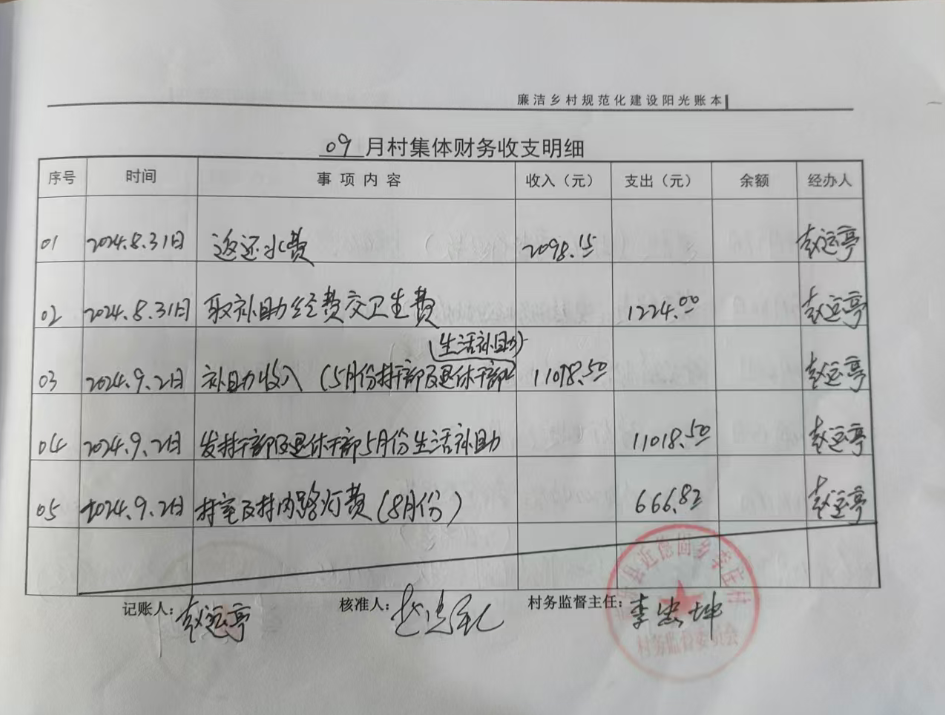 廉洁乡村规范化建设阳光账本
09月村集体财务收支明细
序号 时间 事项内容 收入（元） 支出（元） 余额 经办人
01 2024.8.31日 返还水费 2098.15 赵运亭
02 2024.8.31日 取补助经费交卫生费 1224.00 赵运亭
(生活补助)
03 2024.9.2日 补助收入（5月份村干部及退休干部 11098.50 赵运亭
04 2024.9.2日 发村干部及退休干部5月份生活补助 11018.50 赵运亭
05 2024.9.2日 村室及村内路灯费（8月份） 666.82 赵运亭
记账人：赵运亭 核准人： 村务监督主任：李忠坤
县近德回乡李庄村
村务监督委员会